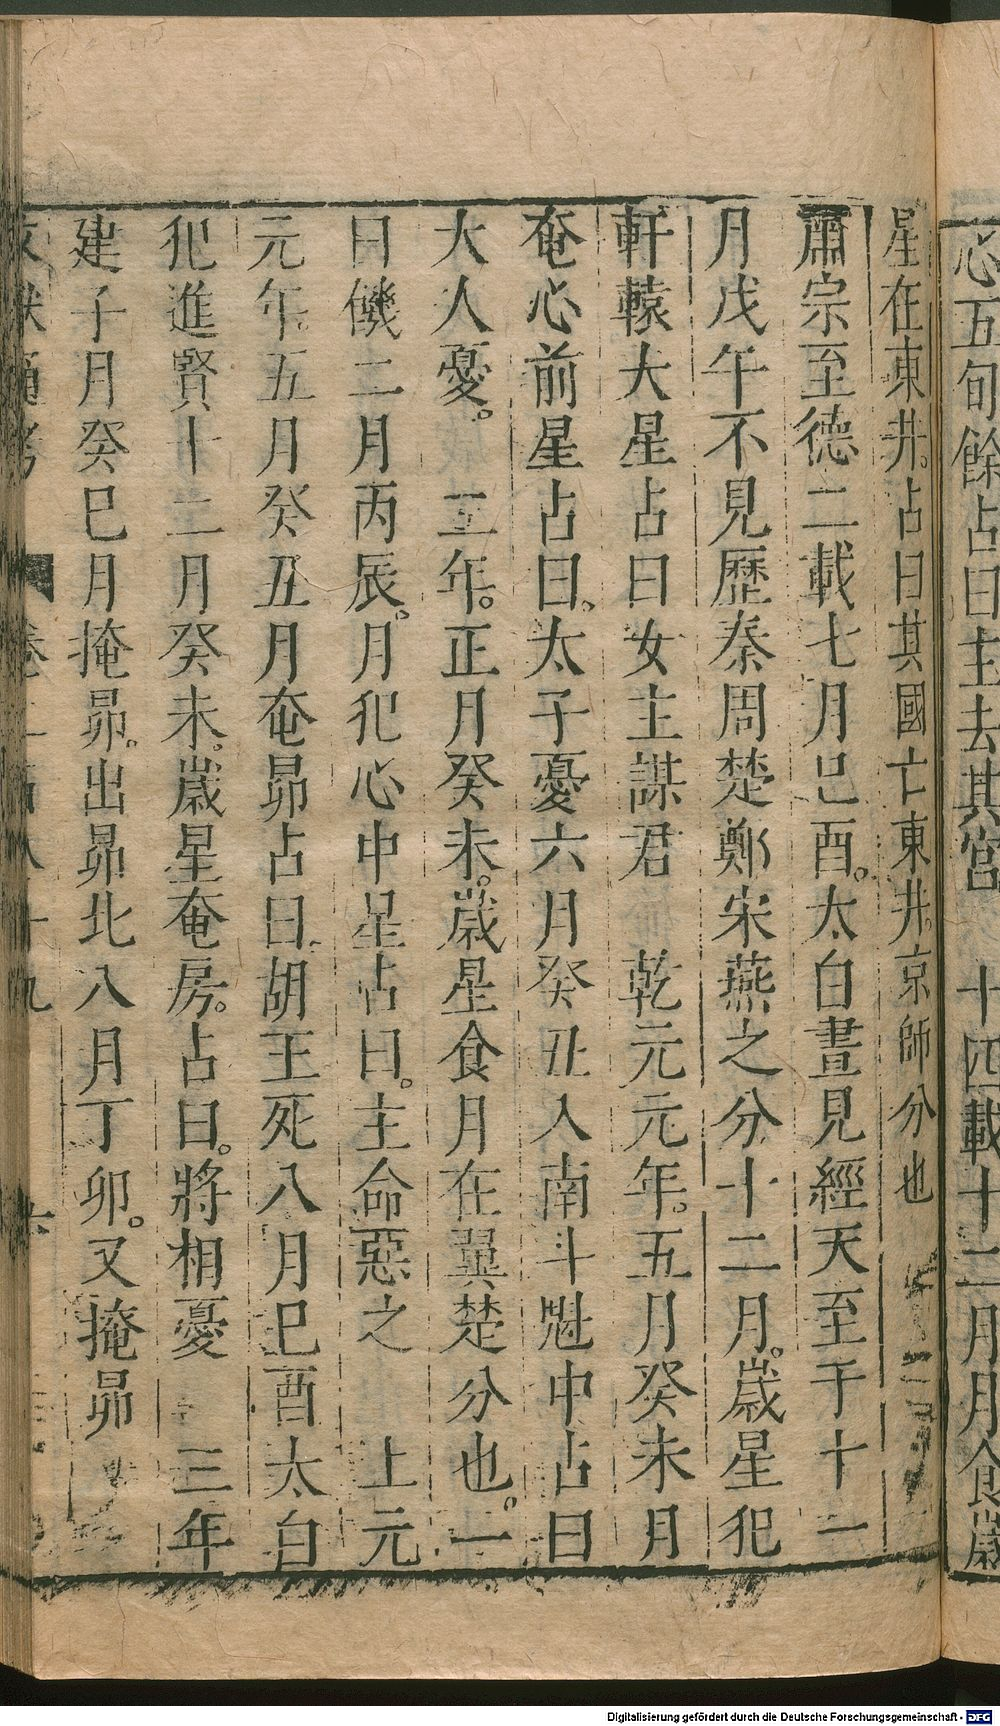 心五旬餘占曰主去其宮 十四載十二月月食歲
星在東井占曰其國亡東井京師分也
肅宗至德二載七月己酉太白晝見經天至于十一
月戊午不見歷秦周楚鄭宋燕之分十二月歲星犯
軒轅大星占曰女主謀君 乾元元年五月癸未月
奄心前星占曰太子憂六月癸丑入南斗魁中占曰
大人憂 二年正月癸未歲星食月在翼楚分也一
曰饑二月丙辰月犯心中星占曰主命惡之 上元
元年五月癸丑月奄昴占曰胡王死八月己酉太白
犯進賢十二月癸未歲星奄房占曰將相憂 三年
建子月癸巳月掩昴出昴北八月丁卯又掩昴
Digitalisierung gefördert durch die Deutsche Forschungsgemeinschaft - DFG